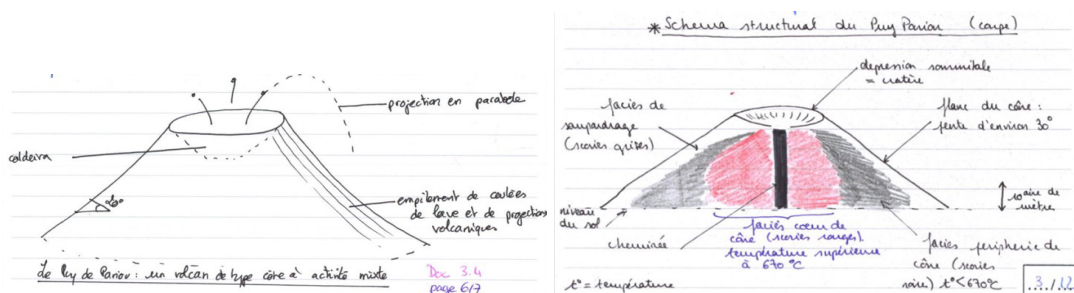 projection en parabole
caldeira
20°
empilement de coulées
de lave et de projections
volcaniques
Le Puy de Pariou : un volcan de type cône à activité mixte
Doc 3.4
page 6/7
* Schema structural du Puy Pariou (coupe)
depression sommitale
= cratère
faciès de
saupoudrage
(scories grises)
flanc du cône :
pente d'environ 30°
10aine de
mètre
niveau
du sol
cheminée
faciès coeur de
cône (scories rouges).
température supérieure
à 670 °C
facies peripherie de
cône (scories
noire) t° < 670°C
t° = température
3./12